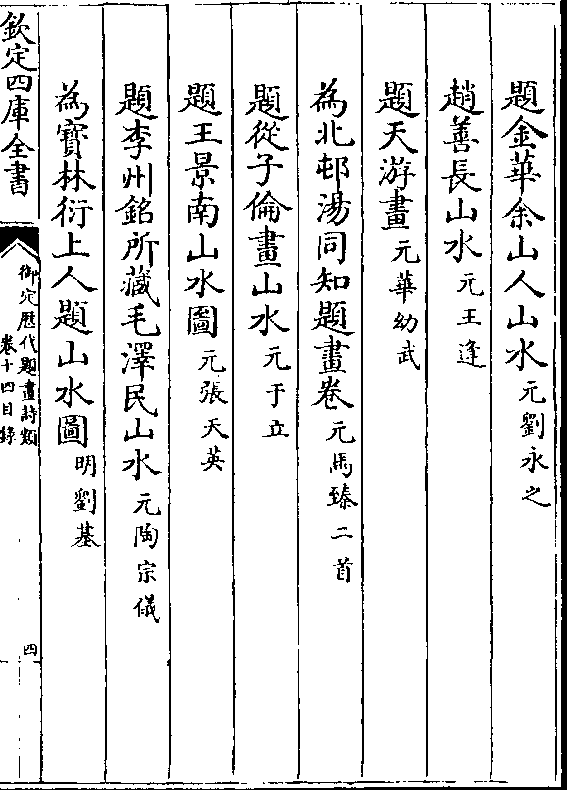 題金華余山人山水 元劉永之
趙善長山水 元王逢
題天游畫 元華幼武
為北邨湯同知題畫卷 元馬臻二首
題從子倫畫山水 元于立
題王景南山水圖 元張天英
題李州銘所藏毛澤民山水 元陶宗儀
為寶林衍上人題山水圖 明劉基
欽定四庫全書
御定歷代題畫詩類
卷十四目錄
四